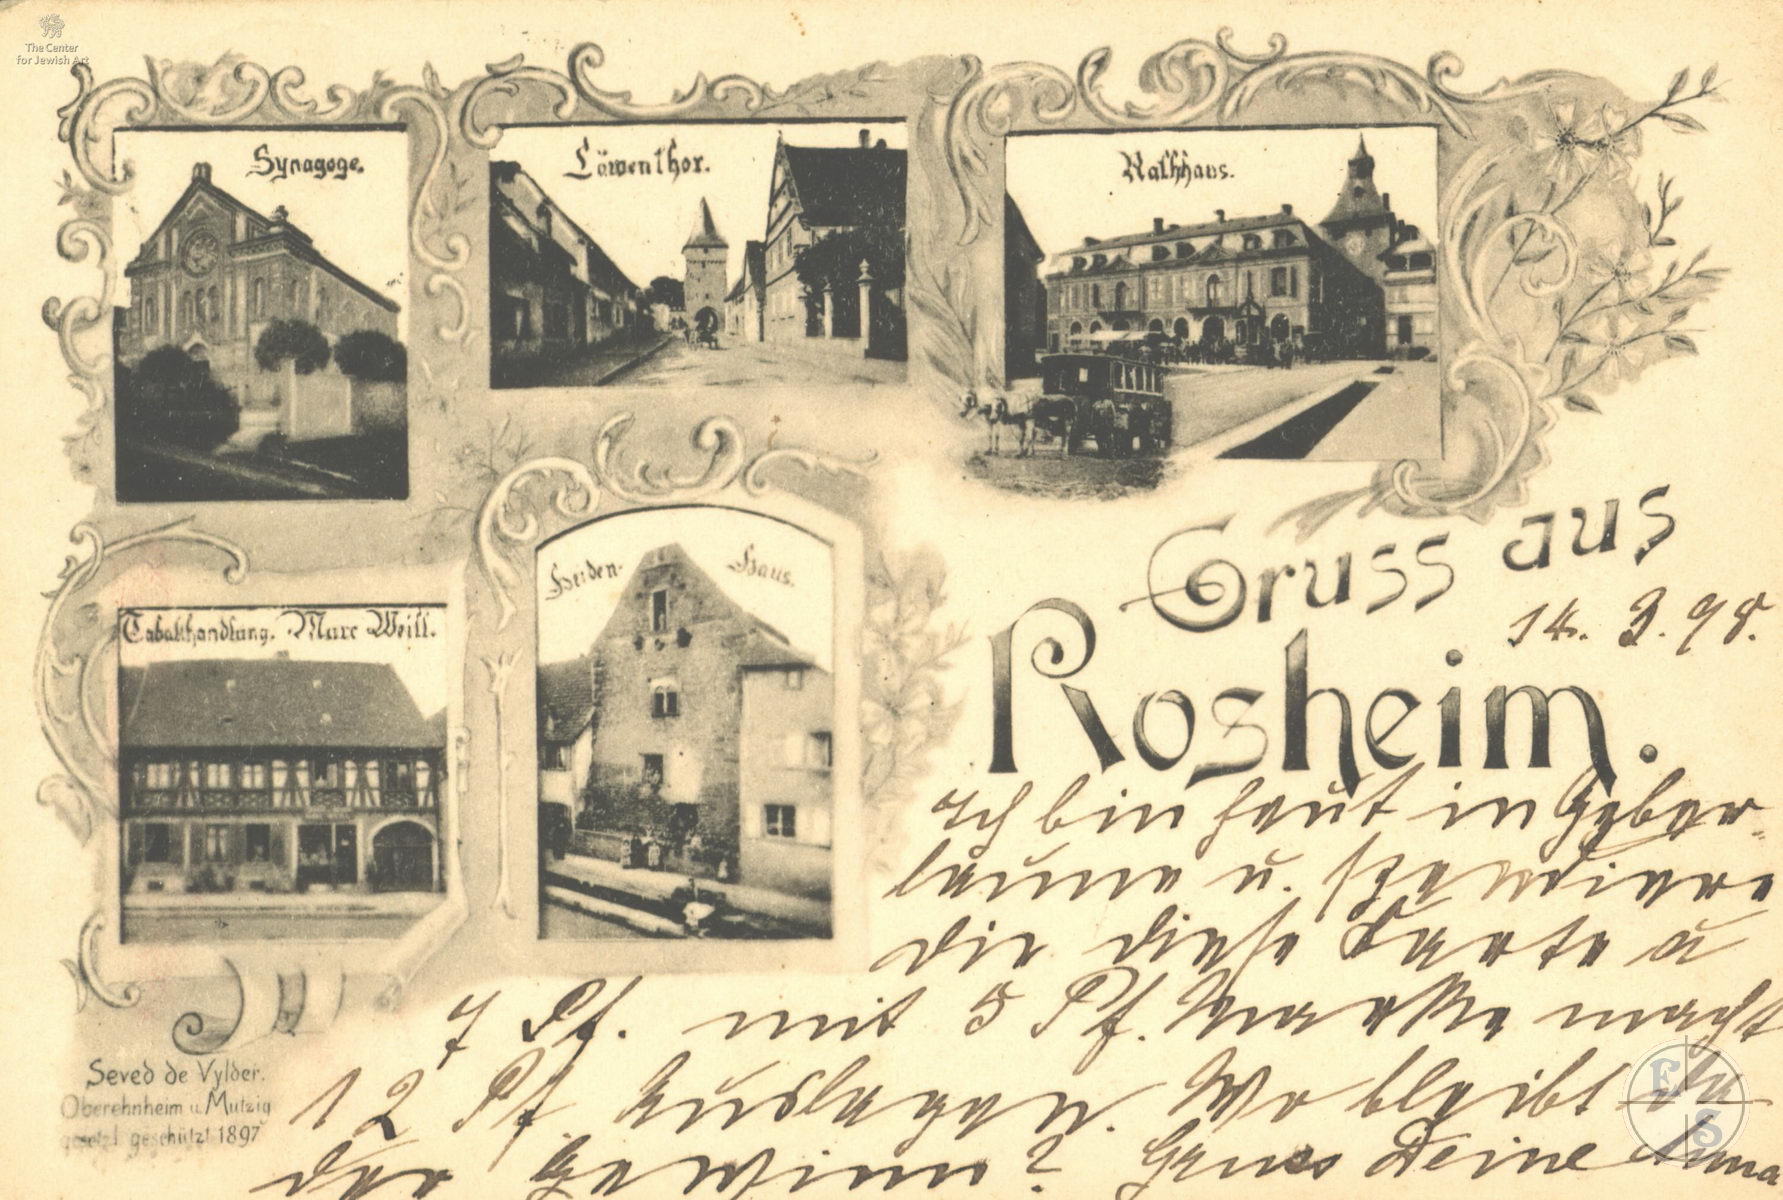 The Center
for Jewish Art
Synagoge.
Löwenthor.
Rathhaus.
Tabakhandlung. Marc Weill.
Heiden-Haus.
Gruss aus
Rosheim.
14. 3. 98.
Ich bin heut in Geber-
laune u. spendiere
dir diese Karte a
7 Pf. mit 5 Pf. Marke macht
12 Pf. Auslagen. Wo bleibt da
der Gewinn? Gruss Deine Anna
Seved de Vylder.
Oberehnheim u. Mutzig
gesetzl. geschützt 1897
E
S